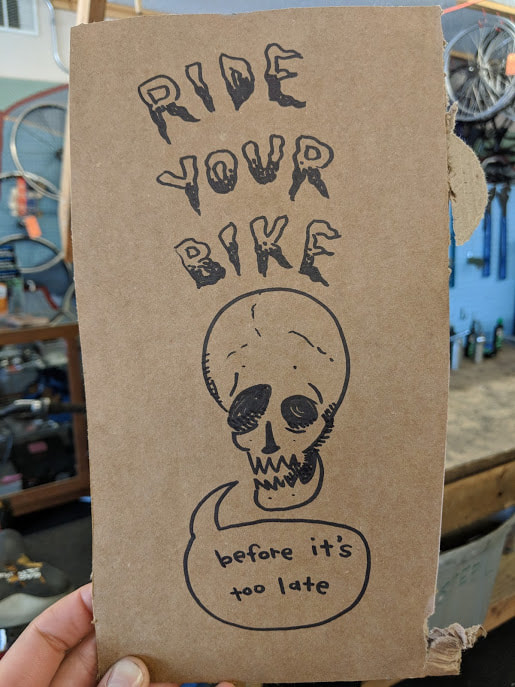 RIDE
YOUR
BIKE
before it's
too late